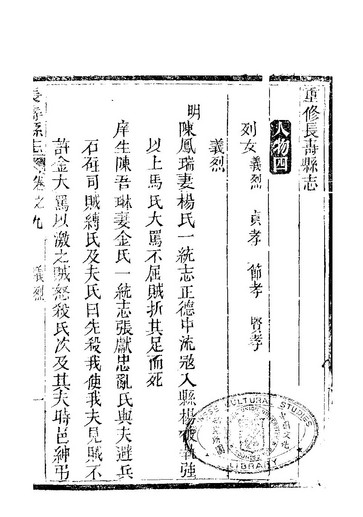 重修長壽縣志
人物四
列女 義烈 貞孝 節孝 賢孝
義烈
明陳鳳瑞妻楊氏一統志正德中流寇入縣楊被執強
以上馬氏大罵不屈賊折其足而死
庠生陳吾琳妻金氏一統志張獻忠亂氏與夫避兵
石砫司賊縛氏及夫氏曰先殺我使我夫見賊不
許金大罵以激之賊怒殺氏次及其夫時邑紳弔
長壽縣志 卷之九 義烈 一
CHINESE CULTURAL STUDIES
LIBRARY